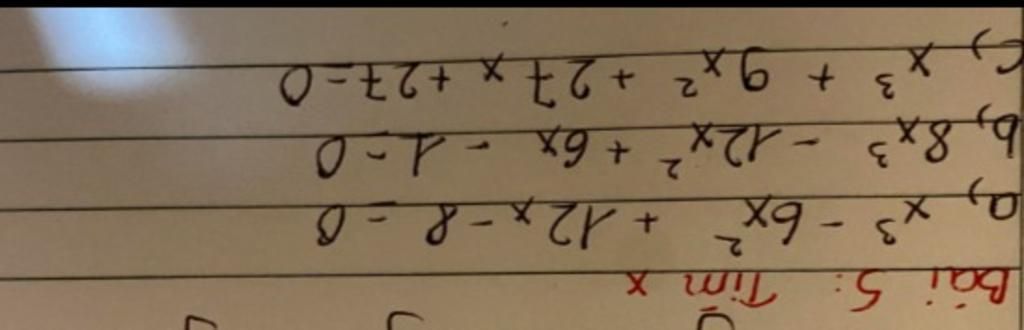 Bài 5: Tìm x
a, x³ - 6x² + 12x - 8 = 0
b, 8x³ - 12x² + 6x - 1 = 0
c, x³ + 9x² + 27x + 27 = 0